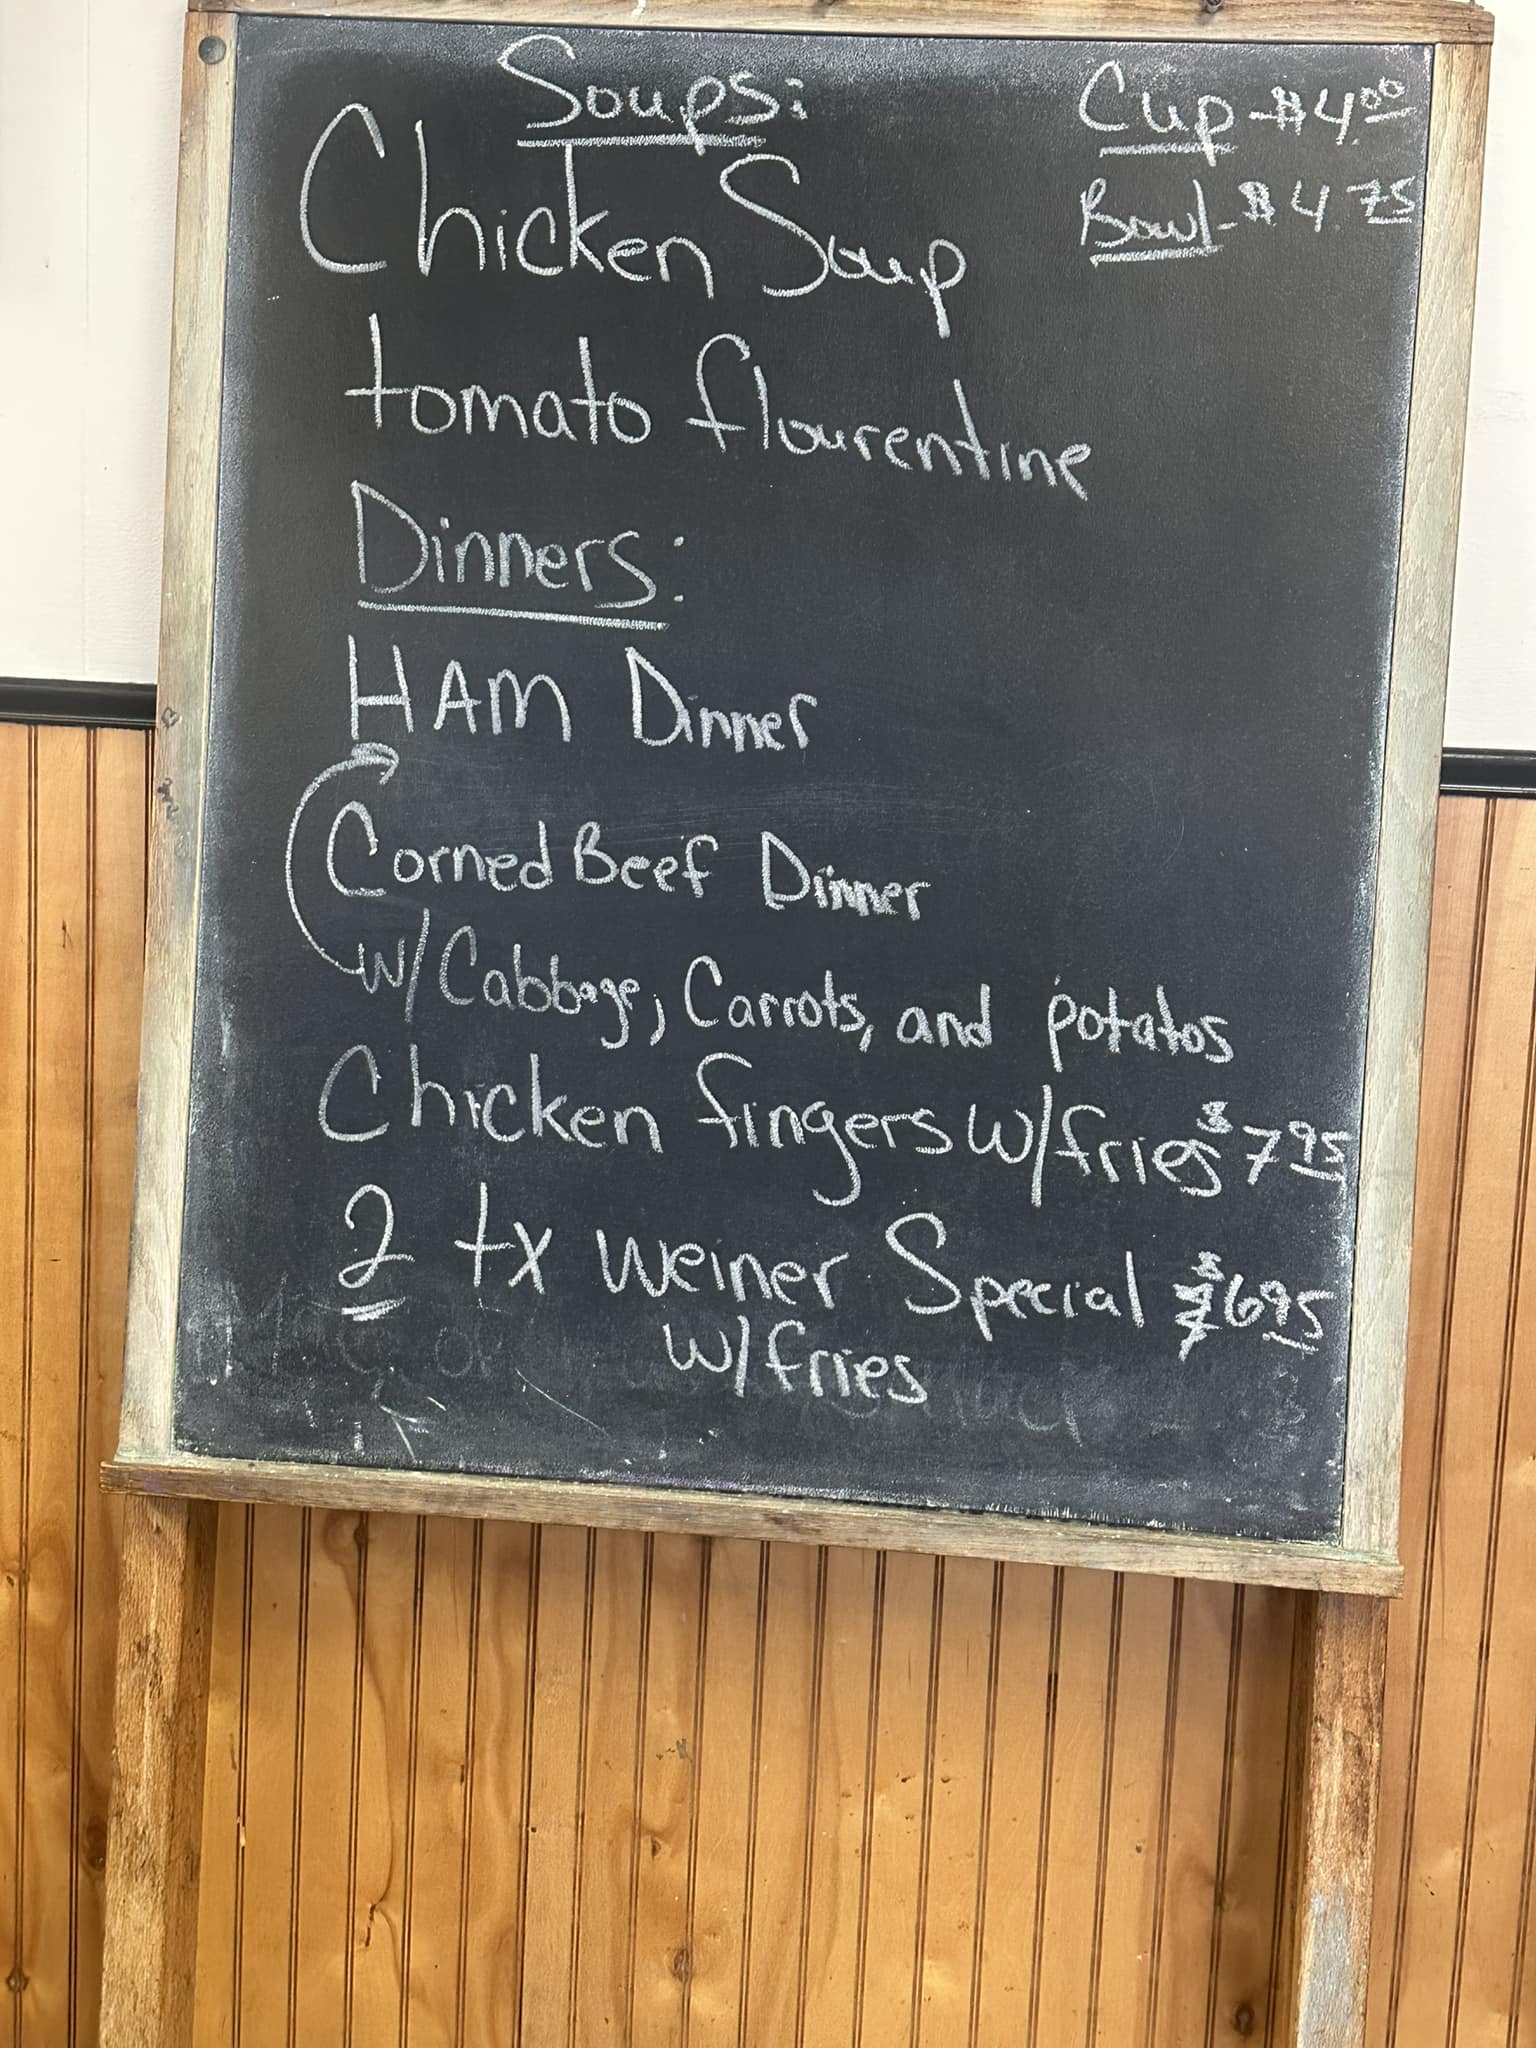 Soups:
Cup-$4.00
Chicken Soup
Bowl-$4.75
tomato flourentine
Dinners:
HAM Dinner
Corned Beef Dinner
w/Cabbage, Carrots, and potatos
Chicken fingers w/fries $7.95
2 tx weiner Special $6.95
w/fries